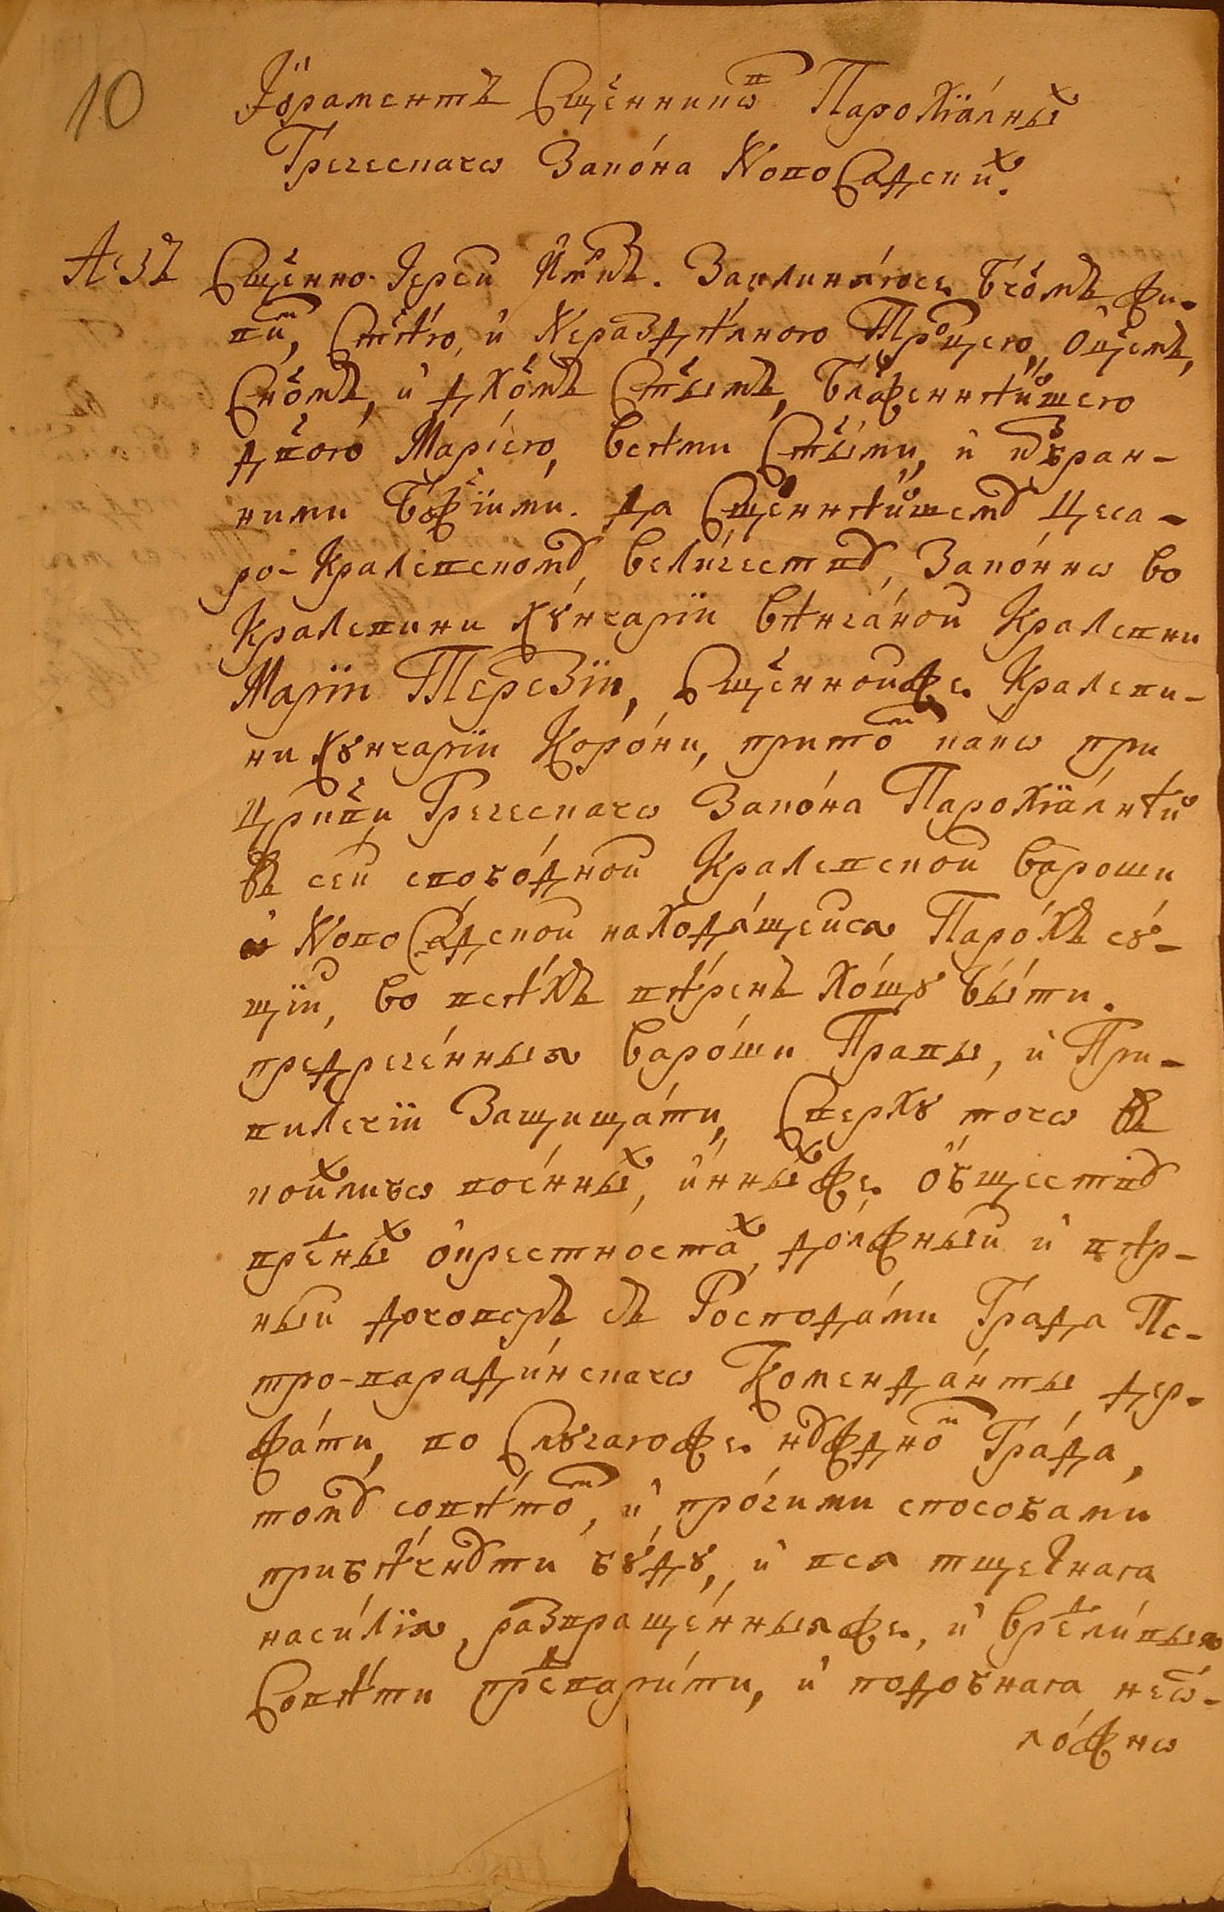 10
Јораментъ Сщ҃еннико̑в Парохїа́лны̑х
Греческагѡ Зако́на Ново Садски̑х.
А́зъ Сщ҃енно Іереи И҆мрк҃ъ. Заклина́юсѧ Бг҃о́мъ жи-
ви̑м, Ст҃ѣ́ю, и҆ Нераздѣ́лною Трⷪ҇цею, Ѻ҆ц҃емъ,
Сн҃о́мъ, и҆ Дх҃о́мъ Ст҃ы́мъ, Бл҃же́ннѣйшею
Дв҃ою Марі́ею, всѣ́ми Ст҃ы́ми, и҆ и҆збран-
ними Бж҃їими. Да Сщ҃еннѣйшемꙋ Цеса-
ро-Кралевскомꙋ вели́чествꙋ, Зако́ннѡ во
Кралевини Хꙋнгарїи вѣнча́нои Кралевни
Марїи Терезїи, Сщ҃еннойже Кралеви-
ни Хꙋнгарїи Коро́ни, прито̑м какѡ при
Цр҃кви Греческагѡ Зако́на Парохїа́лнѣй
въ сей свобо́дной Кралевской Вароши
и҆ Ново Са́дской находѧ́щейсѧ Паро́хъ сꙋ́-
щїй, во всѣ́хъ вѣ́ренъ хо́щꙋ бы́ти.
предрече́нныѧ Варо́ши Правы, и҆ При-
вилегїи Защища́ти, Сверхꙋ тогѡ въ
колико̑х вое́нны̑х, и҆нны̑хже ѻ҆́бществꙋ
вре́дны̑х ѻ҆крестноста̑х, до́лжный и҆ вѣ́р-
ный договоръ съ Господа́ми Града Пе-
тро-варади́нскагѡ Коменда́нты дер-
жа́ти, по Слꙋчаюже нꙋ́ждно̑м Гра́да,
томꙋ совѣ́то̑м, и҆ про́чими способами
прибѣ́гнꙋти бꙋ́дꙋ, и҆ всѧ тщетнаѧ
наси́лїѧ, развраще́нныѧже, и҆ вредли́выѧ
Совѣ́ти предвари́ти, и҆ подобнаѧ неѿ-
ло́жнѡ